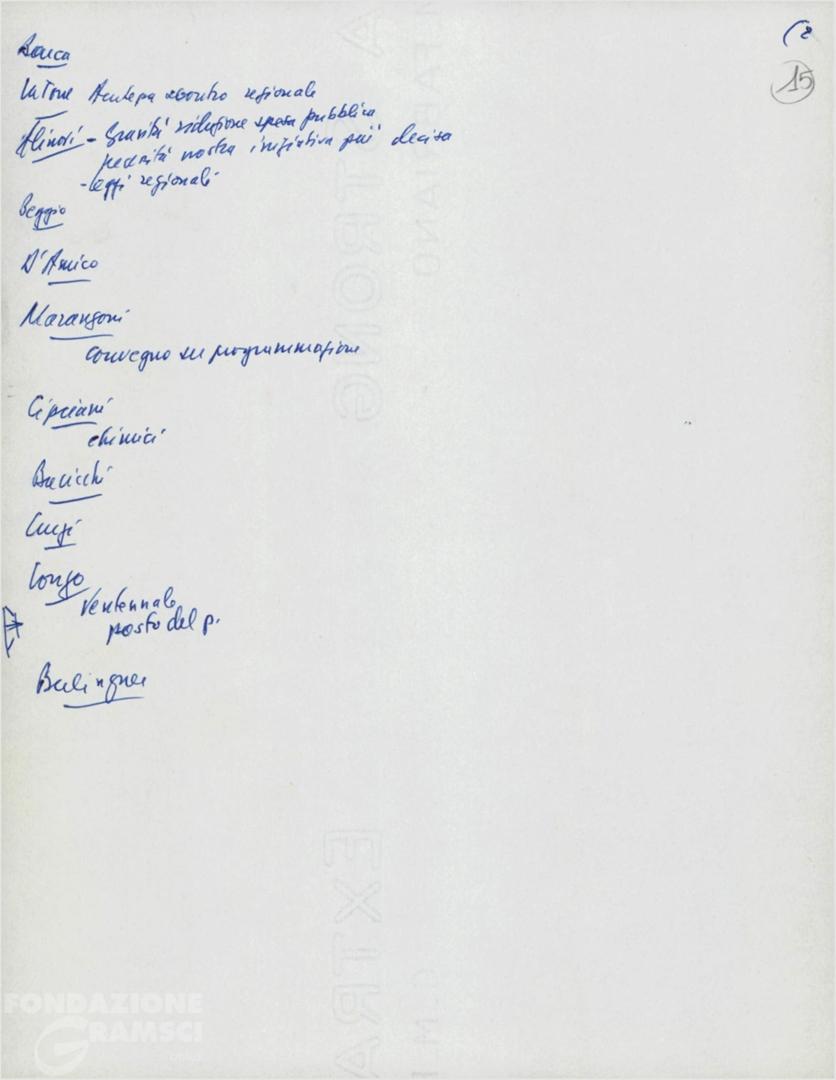 (2
15
La Torre Acutezza scontro regionale
Flinori - Gravità riduzione spesa pubblica
nostra iniziativa più decisa
- leggi regionali
Beggio
D'Amico
Marangoni
convegno su programmazione
Cipriani
chimici
Bacicchi
Longo
Ventennale
posto del p.
Berlinguer
FONDAZIONE
GRAMSCI